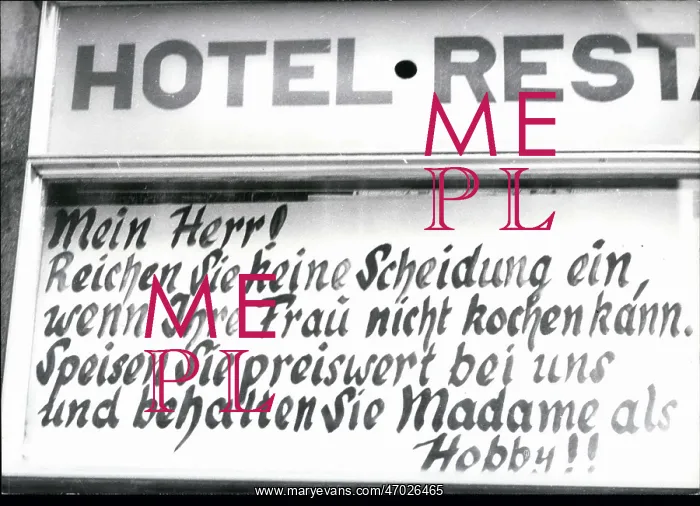 HOTEL • RESTA
Mein Herr!
Reichen Sie keine Scheidung ein,
wenn Ihre Frau nicht kochen kann.
Speisen Sie preiswert bei uns
und behalten Sie Madame als
Hobby!!
ME
PL
ME
PL
www.maryevans.com/47026465